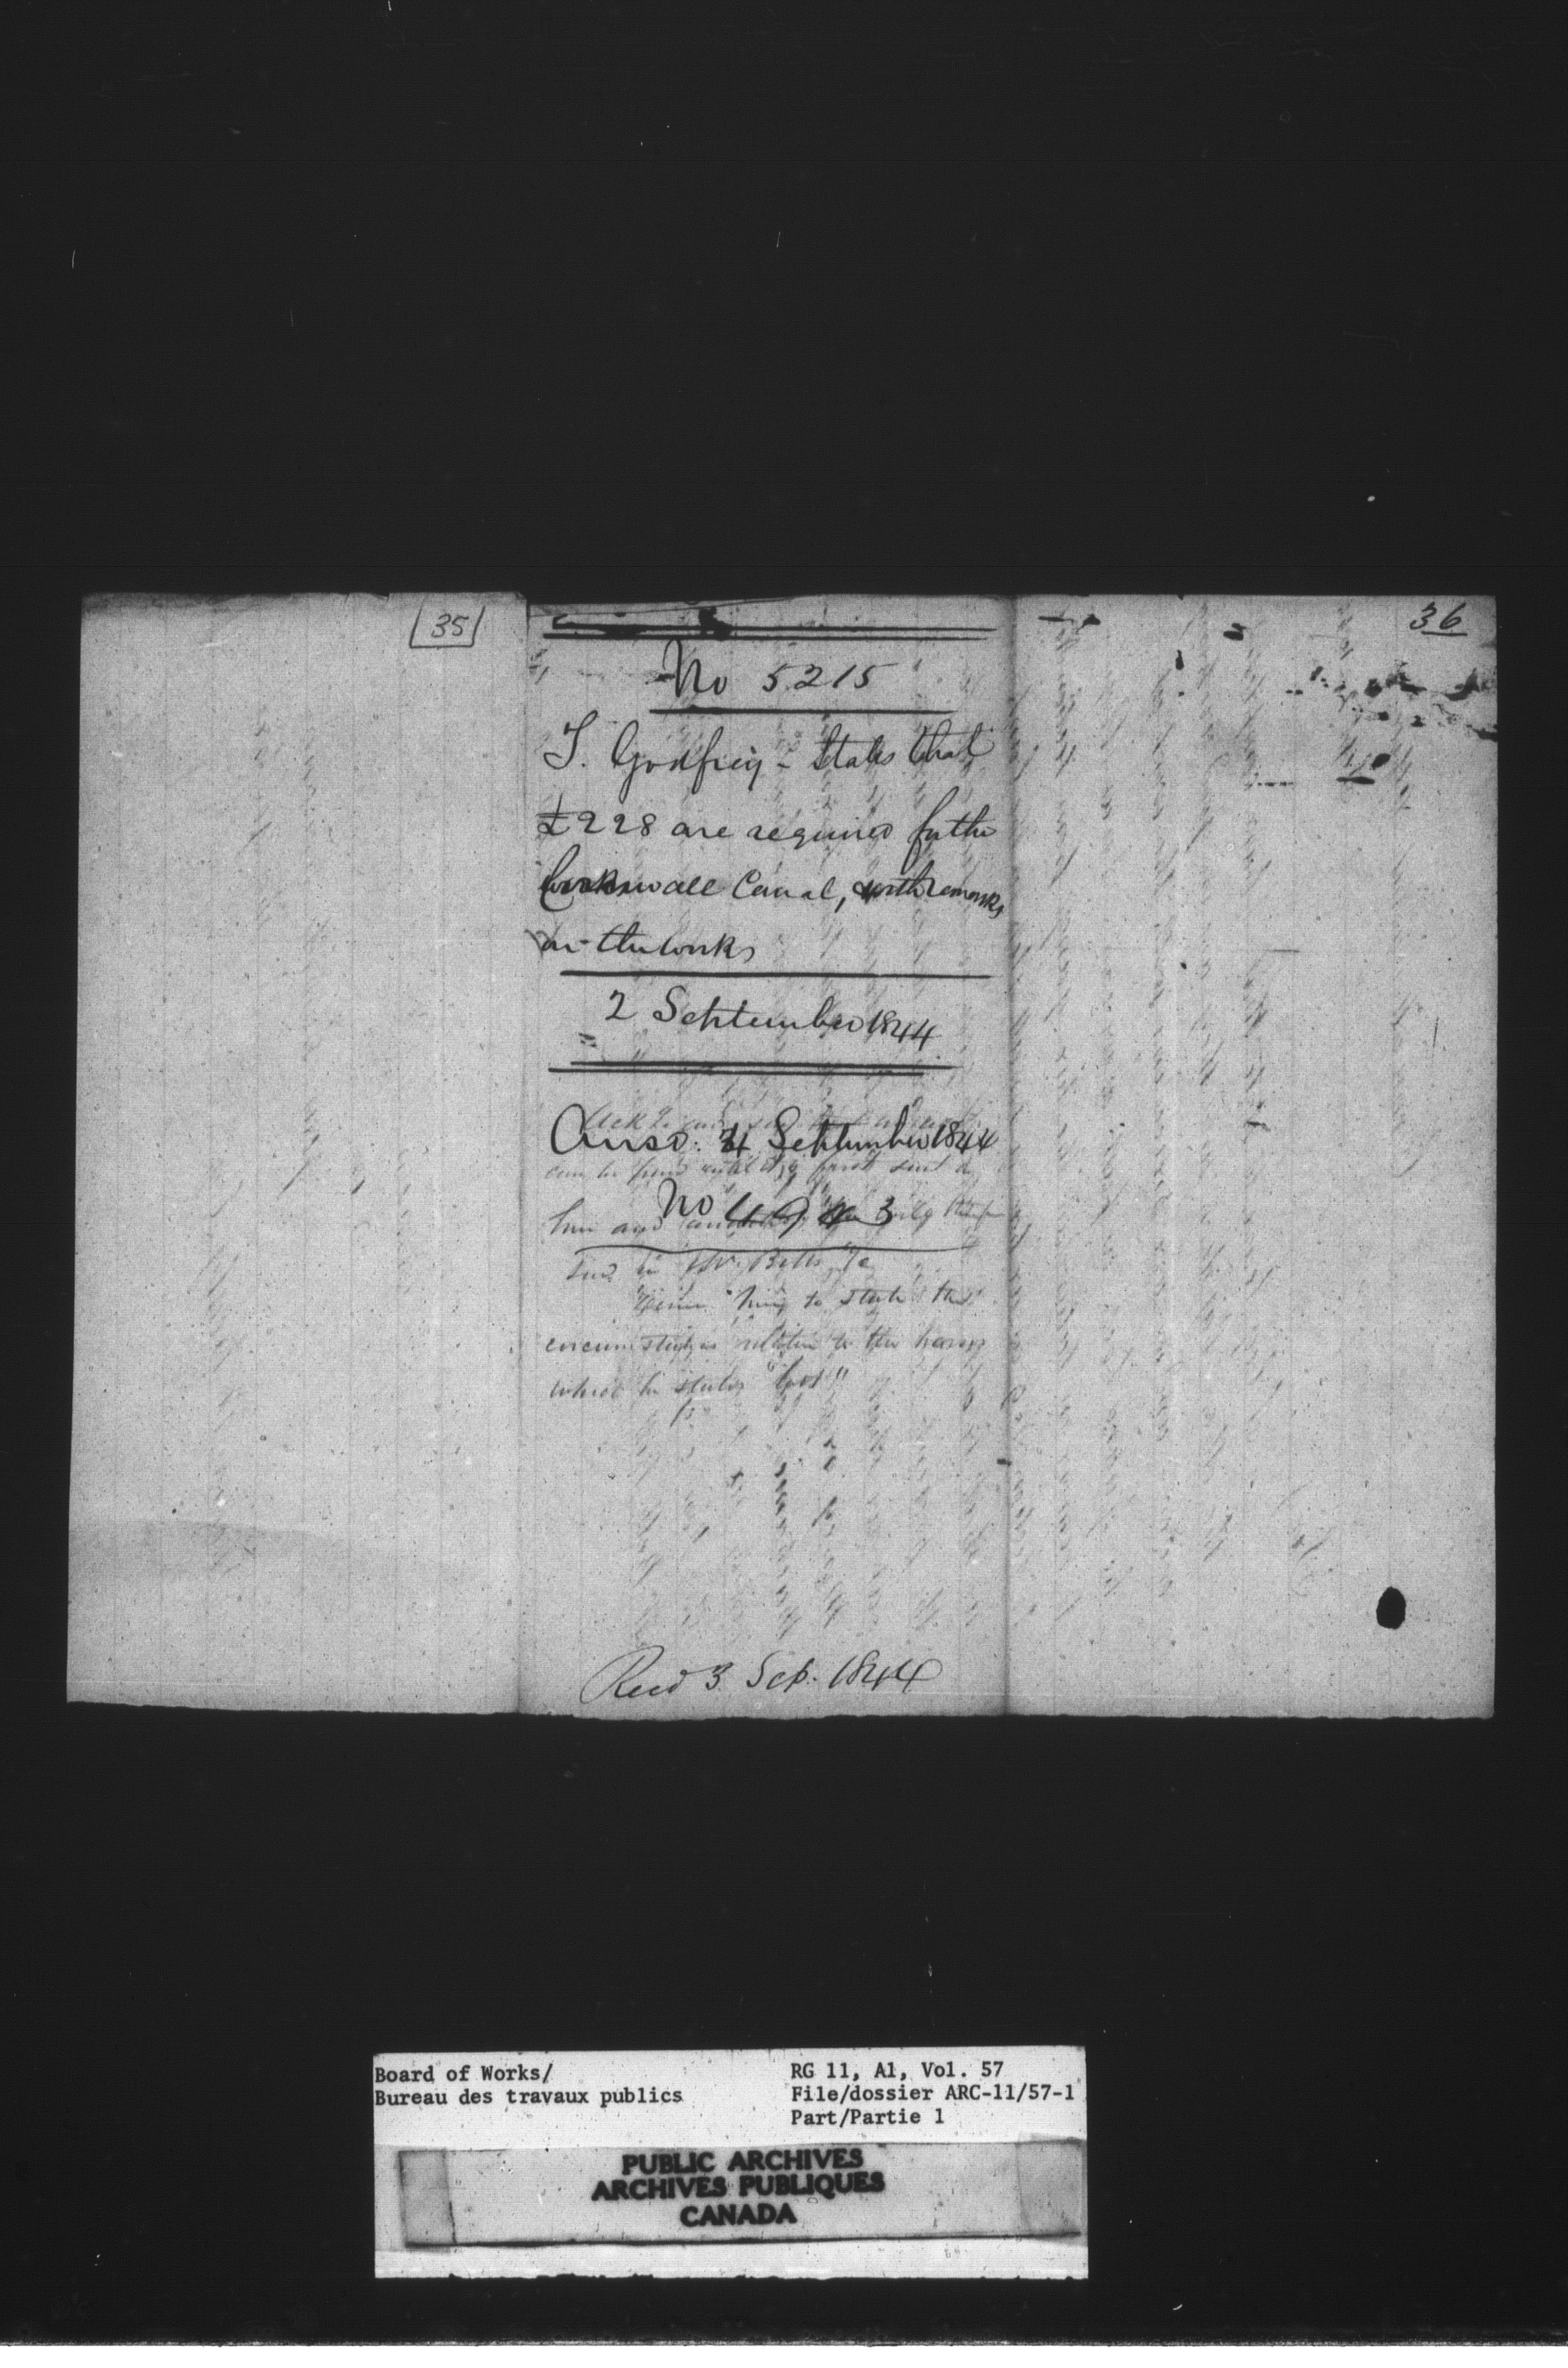 35
36
No 5215
T. Godfrey - States that
£228 are required for the
Cornwall Canal, with remarks
on the works
2 September 1844
Ansd. 4 September 1844
can be paid until
No 4943
him and
Mr. Betts
him to state the
circumstances relative to the
which he states "lost"
Recd 3 Sep. 1844
Board of Works/
Bureau des travaux publics
RG 11, A1, Vol. 57
File/dossier ARC-11/57-1
Part/Partie 1
PUBLIC ARCHIVES
ARCHIVES PUBLIQUES
CANADA